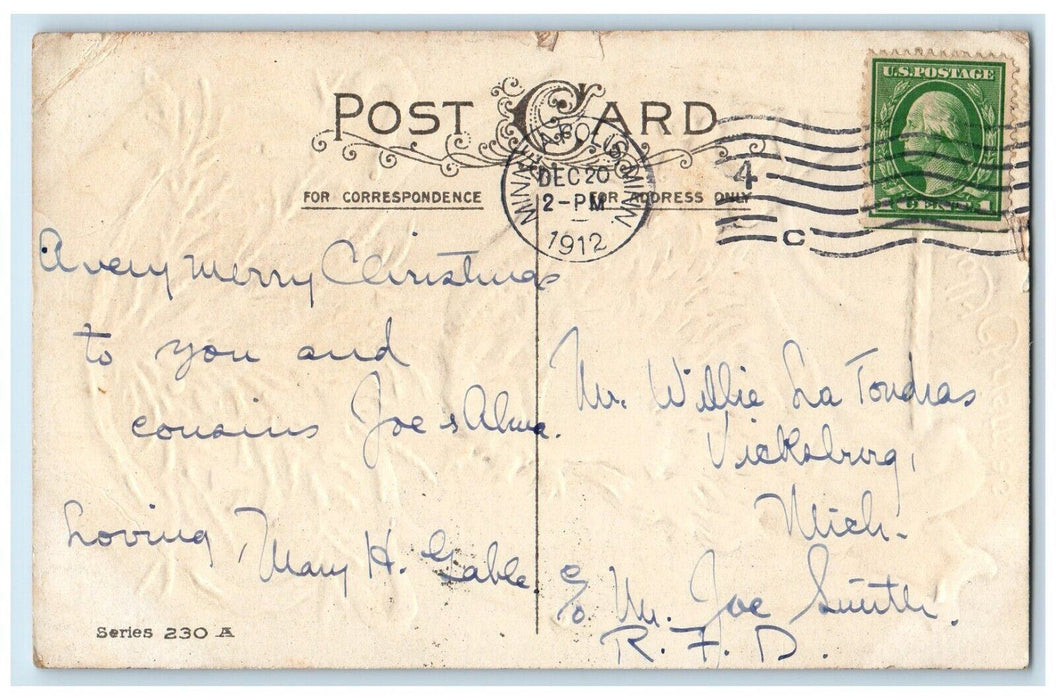 POST CARD
FOR CORRESPONDENCE
FOR ADDRESS ONLY
MINNEAPOLIS, MINN.
DEC 20
2-PM
1912
4
C
U.S. POSTAGE
1 CENT 1
A very merry Christmas
to you and
cousins Joe & Alma.
Loving,
Mary H. Gable.
Series 230 A
Mr. Willie La Tondras
Vicksburg,
Mich.
c/o Mr. Joe Smith.
R.F.D.